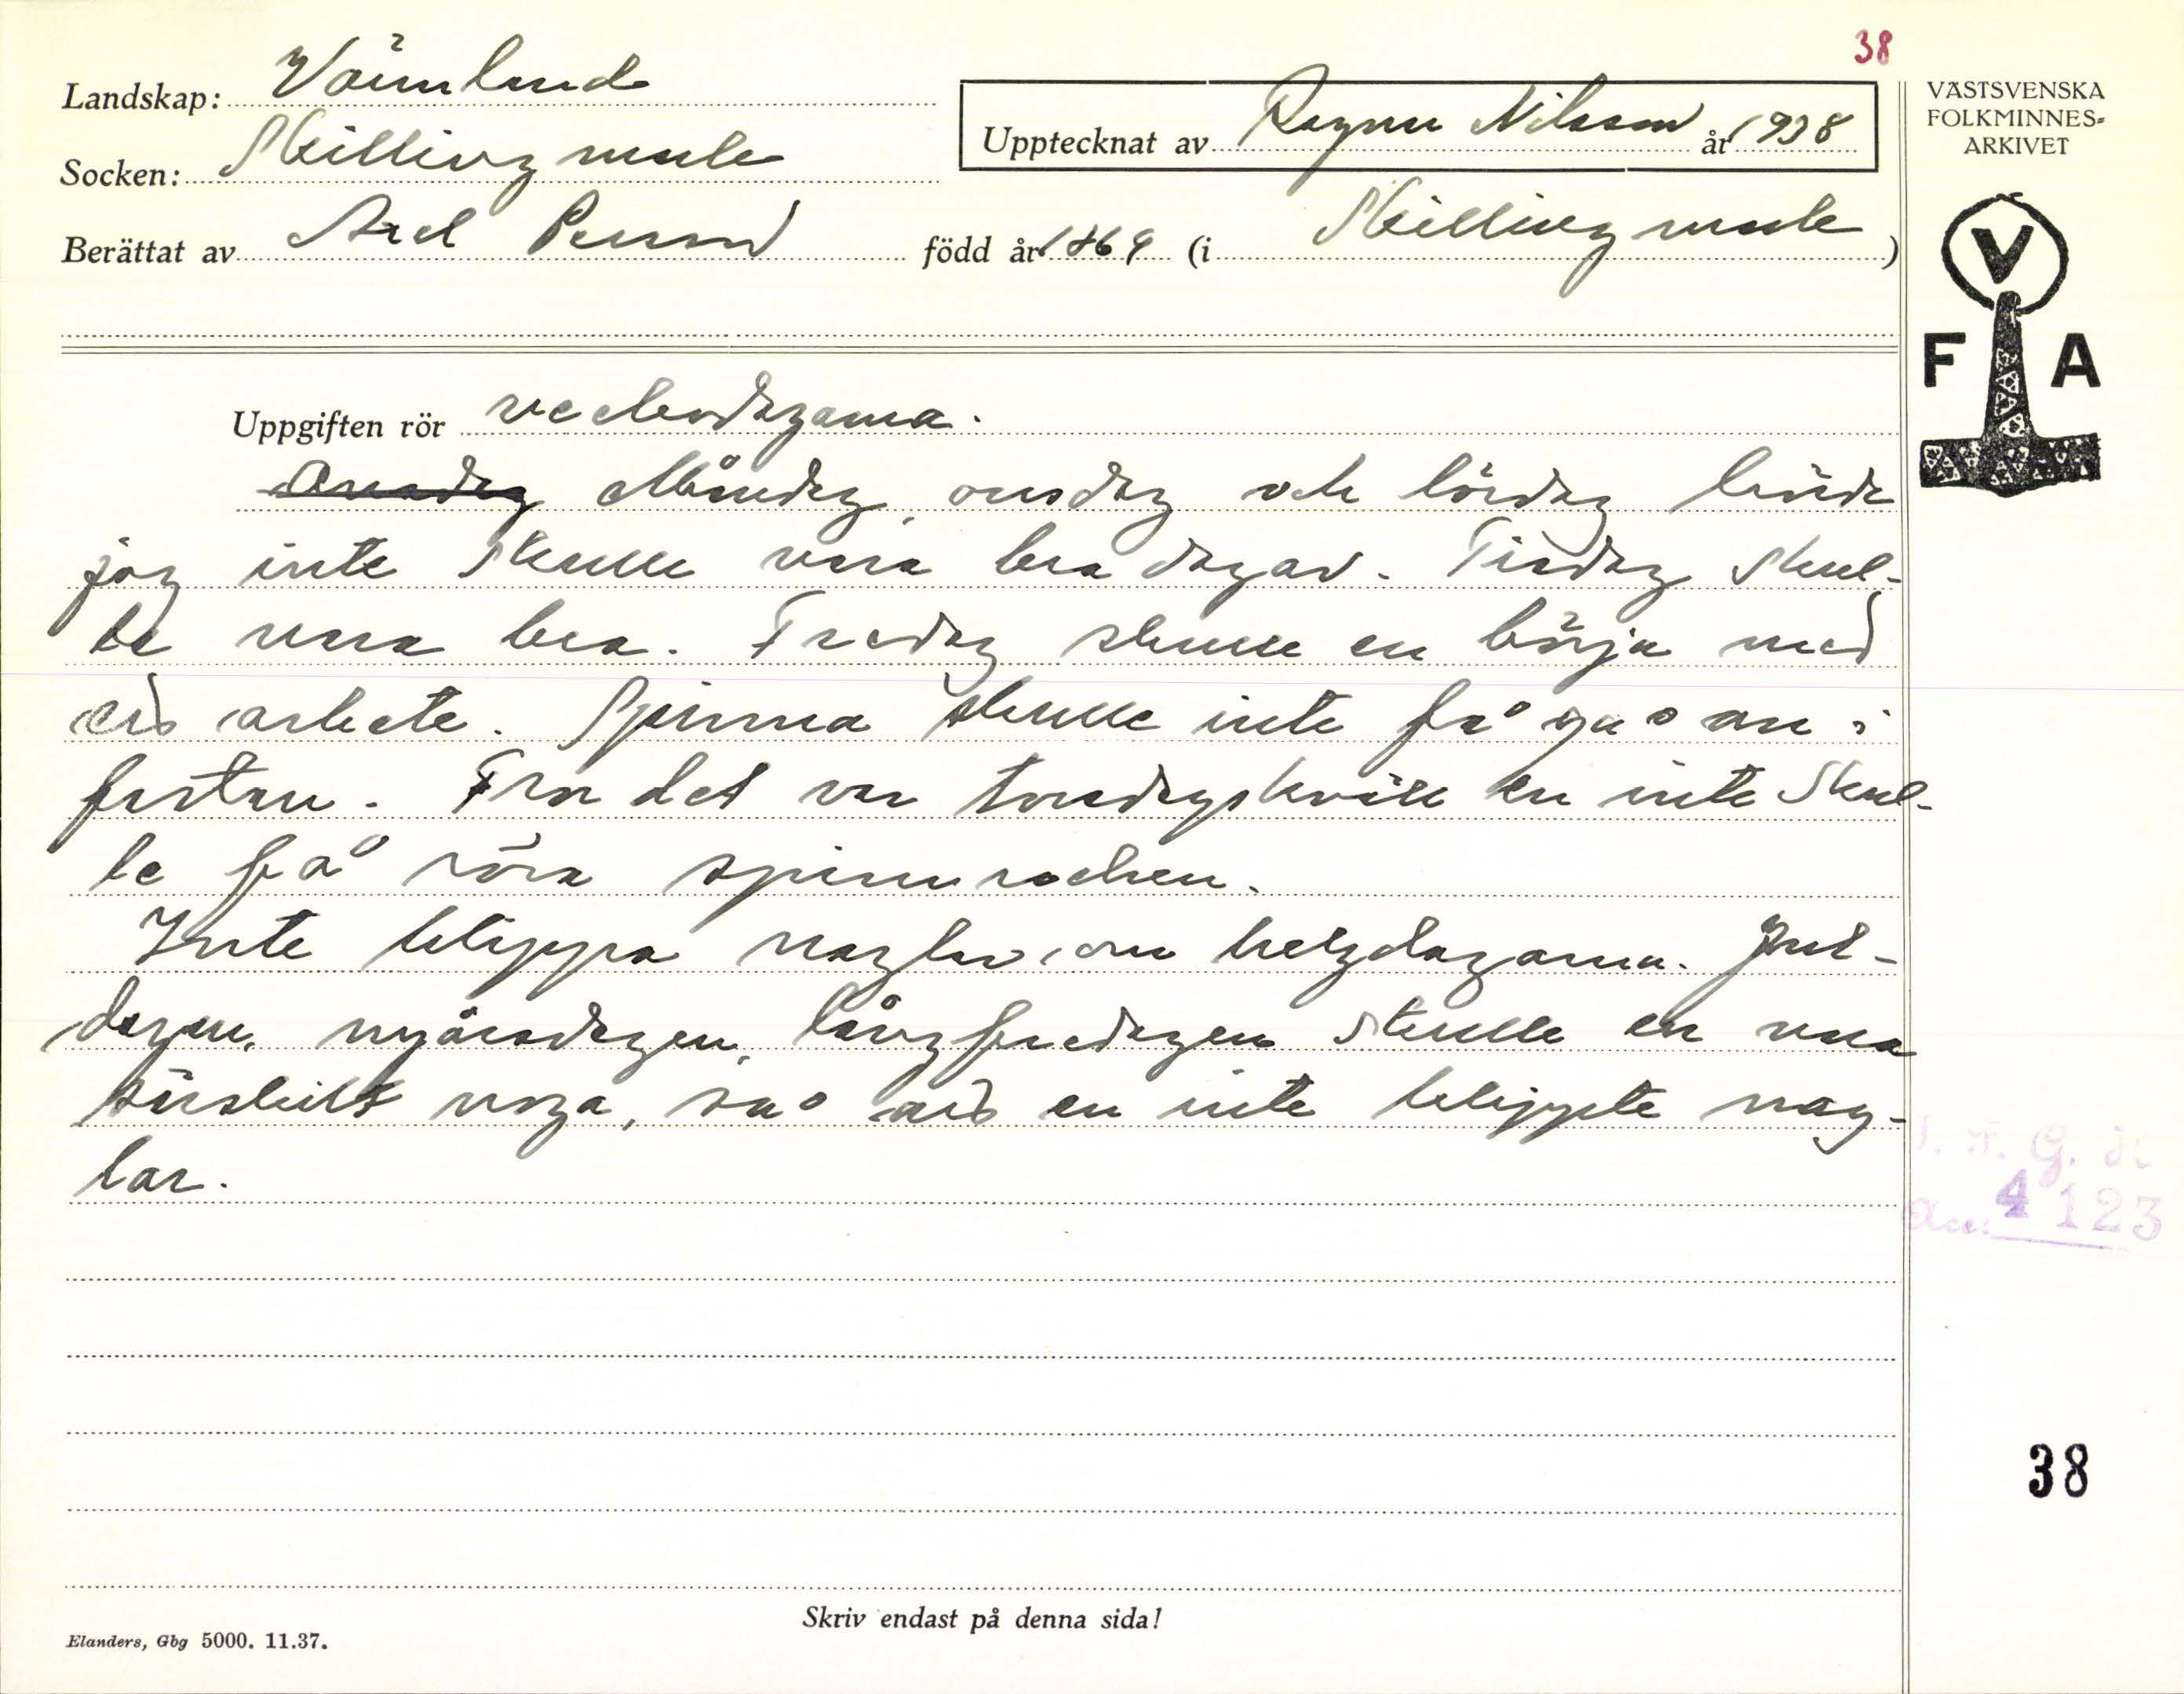 38
Landskap: Värmland
Upptecknat av Ragnar Nilsson år 1938
VÄSTSVENSKA
FOLKMINNES=
ARKIVET
Socken: Skillingmark
Berättat av Axel Persson född år 1869 (i Skillingmark)
V
F A
Uppgiften rör veckodagarna.
Onsdag Måndag, onsdag och lördag hörde
jag inte skulle vara bra dagar. Tisdag skul-
le vara bra. Fredag skulle en börja med
ett arbete. Spinna skulle inte få gå an i
fastan. För det var torsdagskväll en inte skul-
le få röra spinnrocken.
Inte klippa naglar om helgdagarna. Jul-
dagen, nyårsdagen, långfredagen skulle en vara
särskilt noga, så att en inte klippte nag-
lar.
4123
38
Skriv endast på denna sida!
Elanders, Gbg 5000. 11.37.